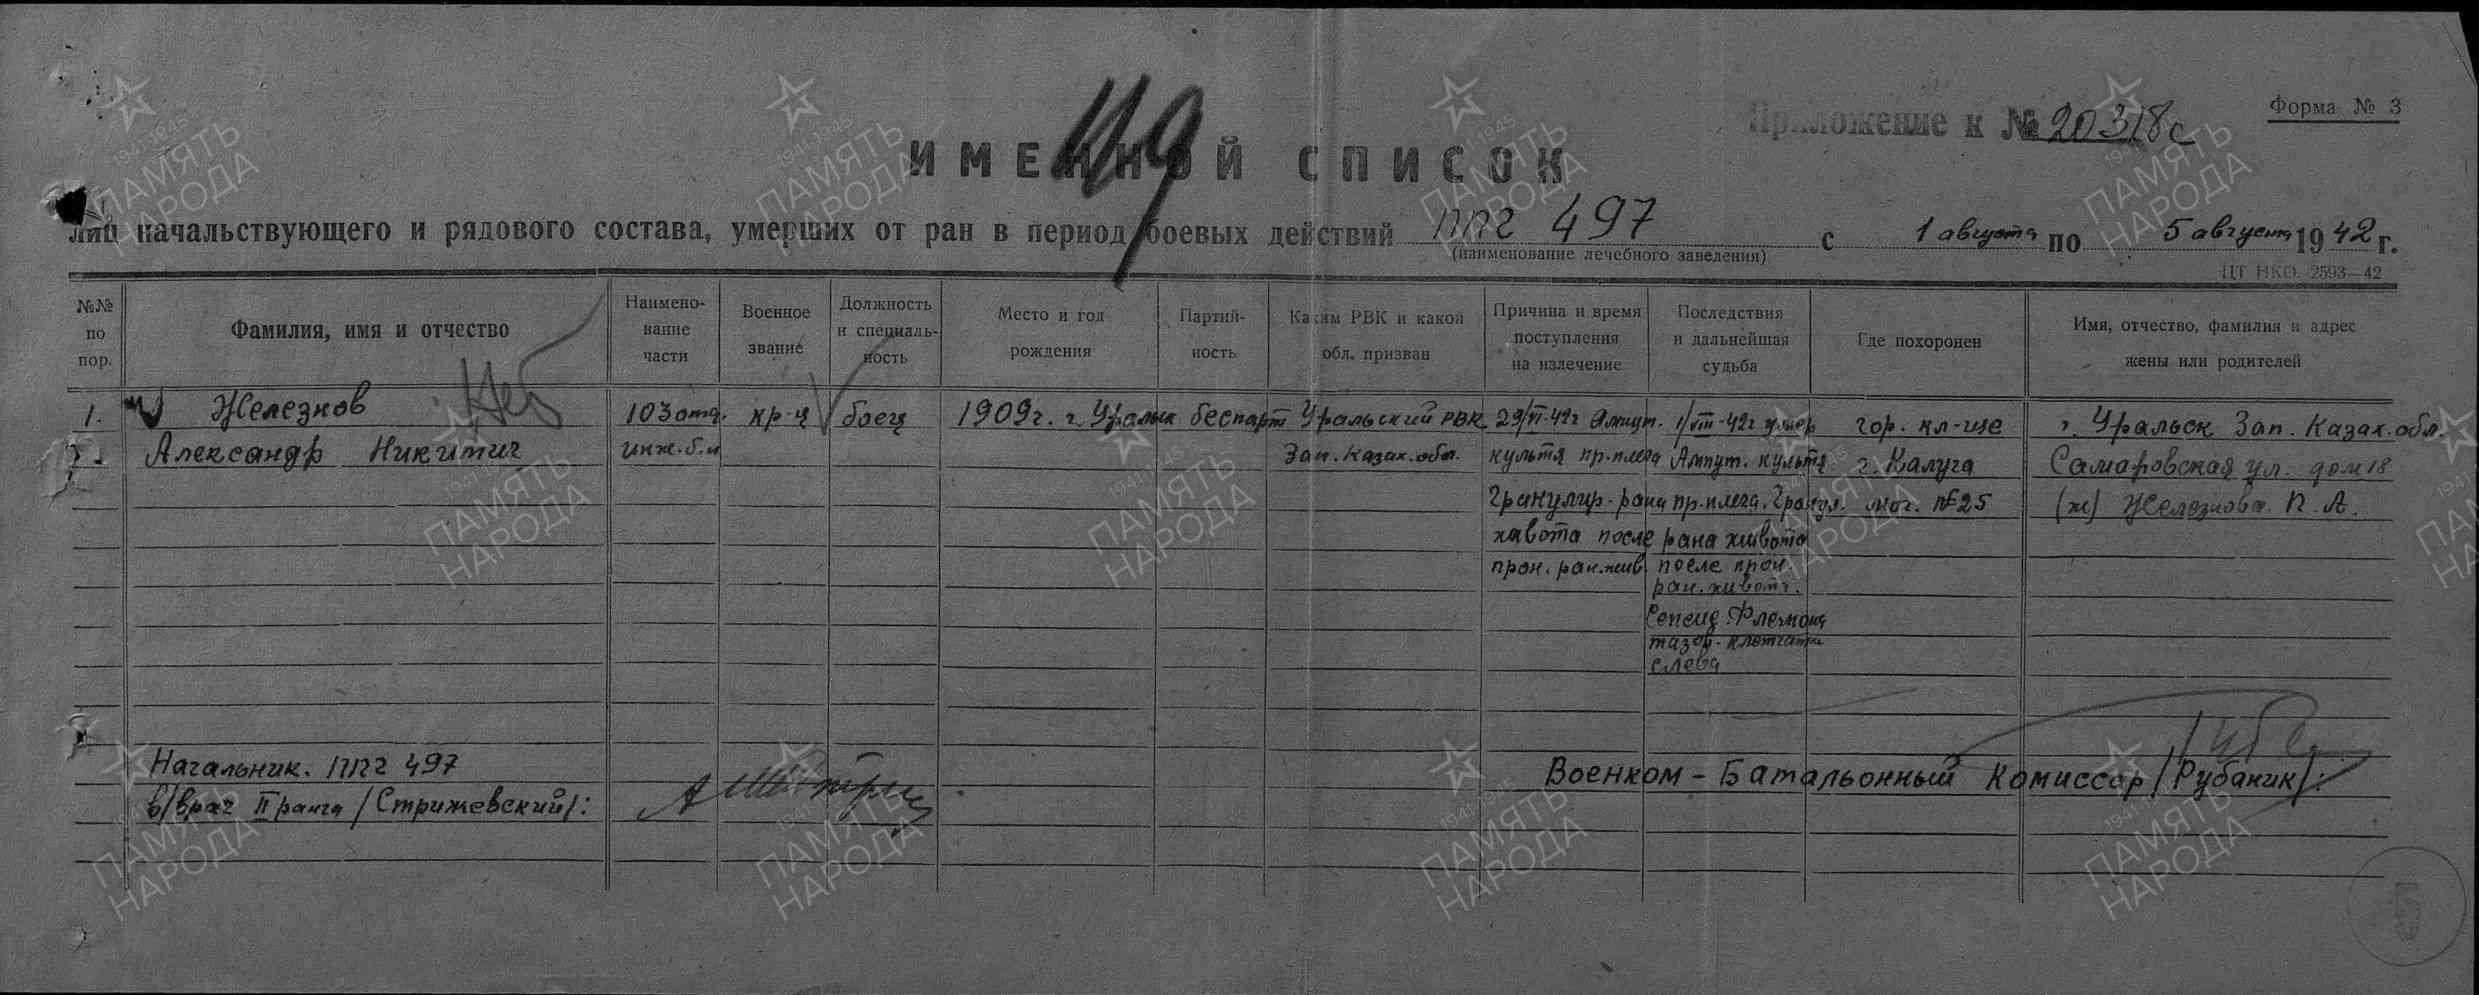 Форма № 3
Приложение к № 20318с
119
ИМЕННОЙ СПИСОК
лиц начальствующего и рядового состава, умерших от ран в период боевых действий ППГ 497 с 1 августа по 5 августа 1942 г.
(наименование лечебного заведения)
ЦТ НКО. 2593—42
№№ по пор.
Фамилия, имя и отчество
Наименование части
Военное звание
Должность и специальность
Место и год рождения
Партийность
Каким РВК и какой обл. призван
Причина и время поступления на излечение
Последствия и дальнейшая судьба
Где похоронен
Имя, отчество, фамилия и адрес жены или родителей
1. Железнов
Александр Никитич
103 отд.
инж. б-н
кр-ц
боец
1909г. г. Уральск
беспарт
Уральский РВК
Зап. Казах. обл.
29/VI-42г Ампут.
культя пр. плеча
Гранулир. рана
живота после
прон. ран. жив.
1/VIII-42г умер
Ампут. культя
пр. плеча. Гранул.
рана живота
после прон.
ран. живота.
Сепсис Флегмона
тазов. клетчатки
слева
гор. кл-ще
г. Калуга
мог. №25
г. Уральск Зап. Казах. обл.
Самаровская ул. дом 18
(ж) Железнова П. А.
Начальник. ППГ 497
в/врач II ранга /Стрижевский/:
Военком - Батальонный Комиссар /Рубаник/:
1941-1945
ПАМЯТЬ
НАРОДА